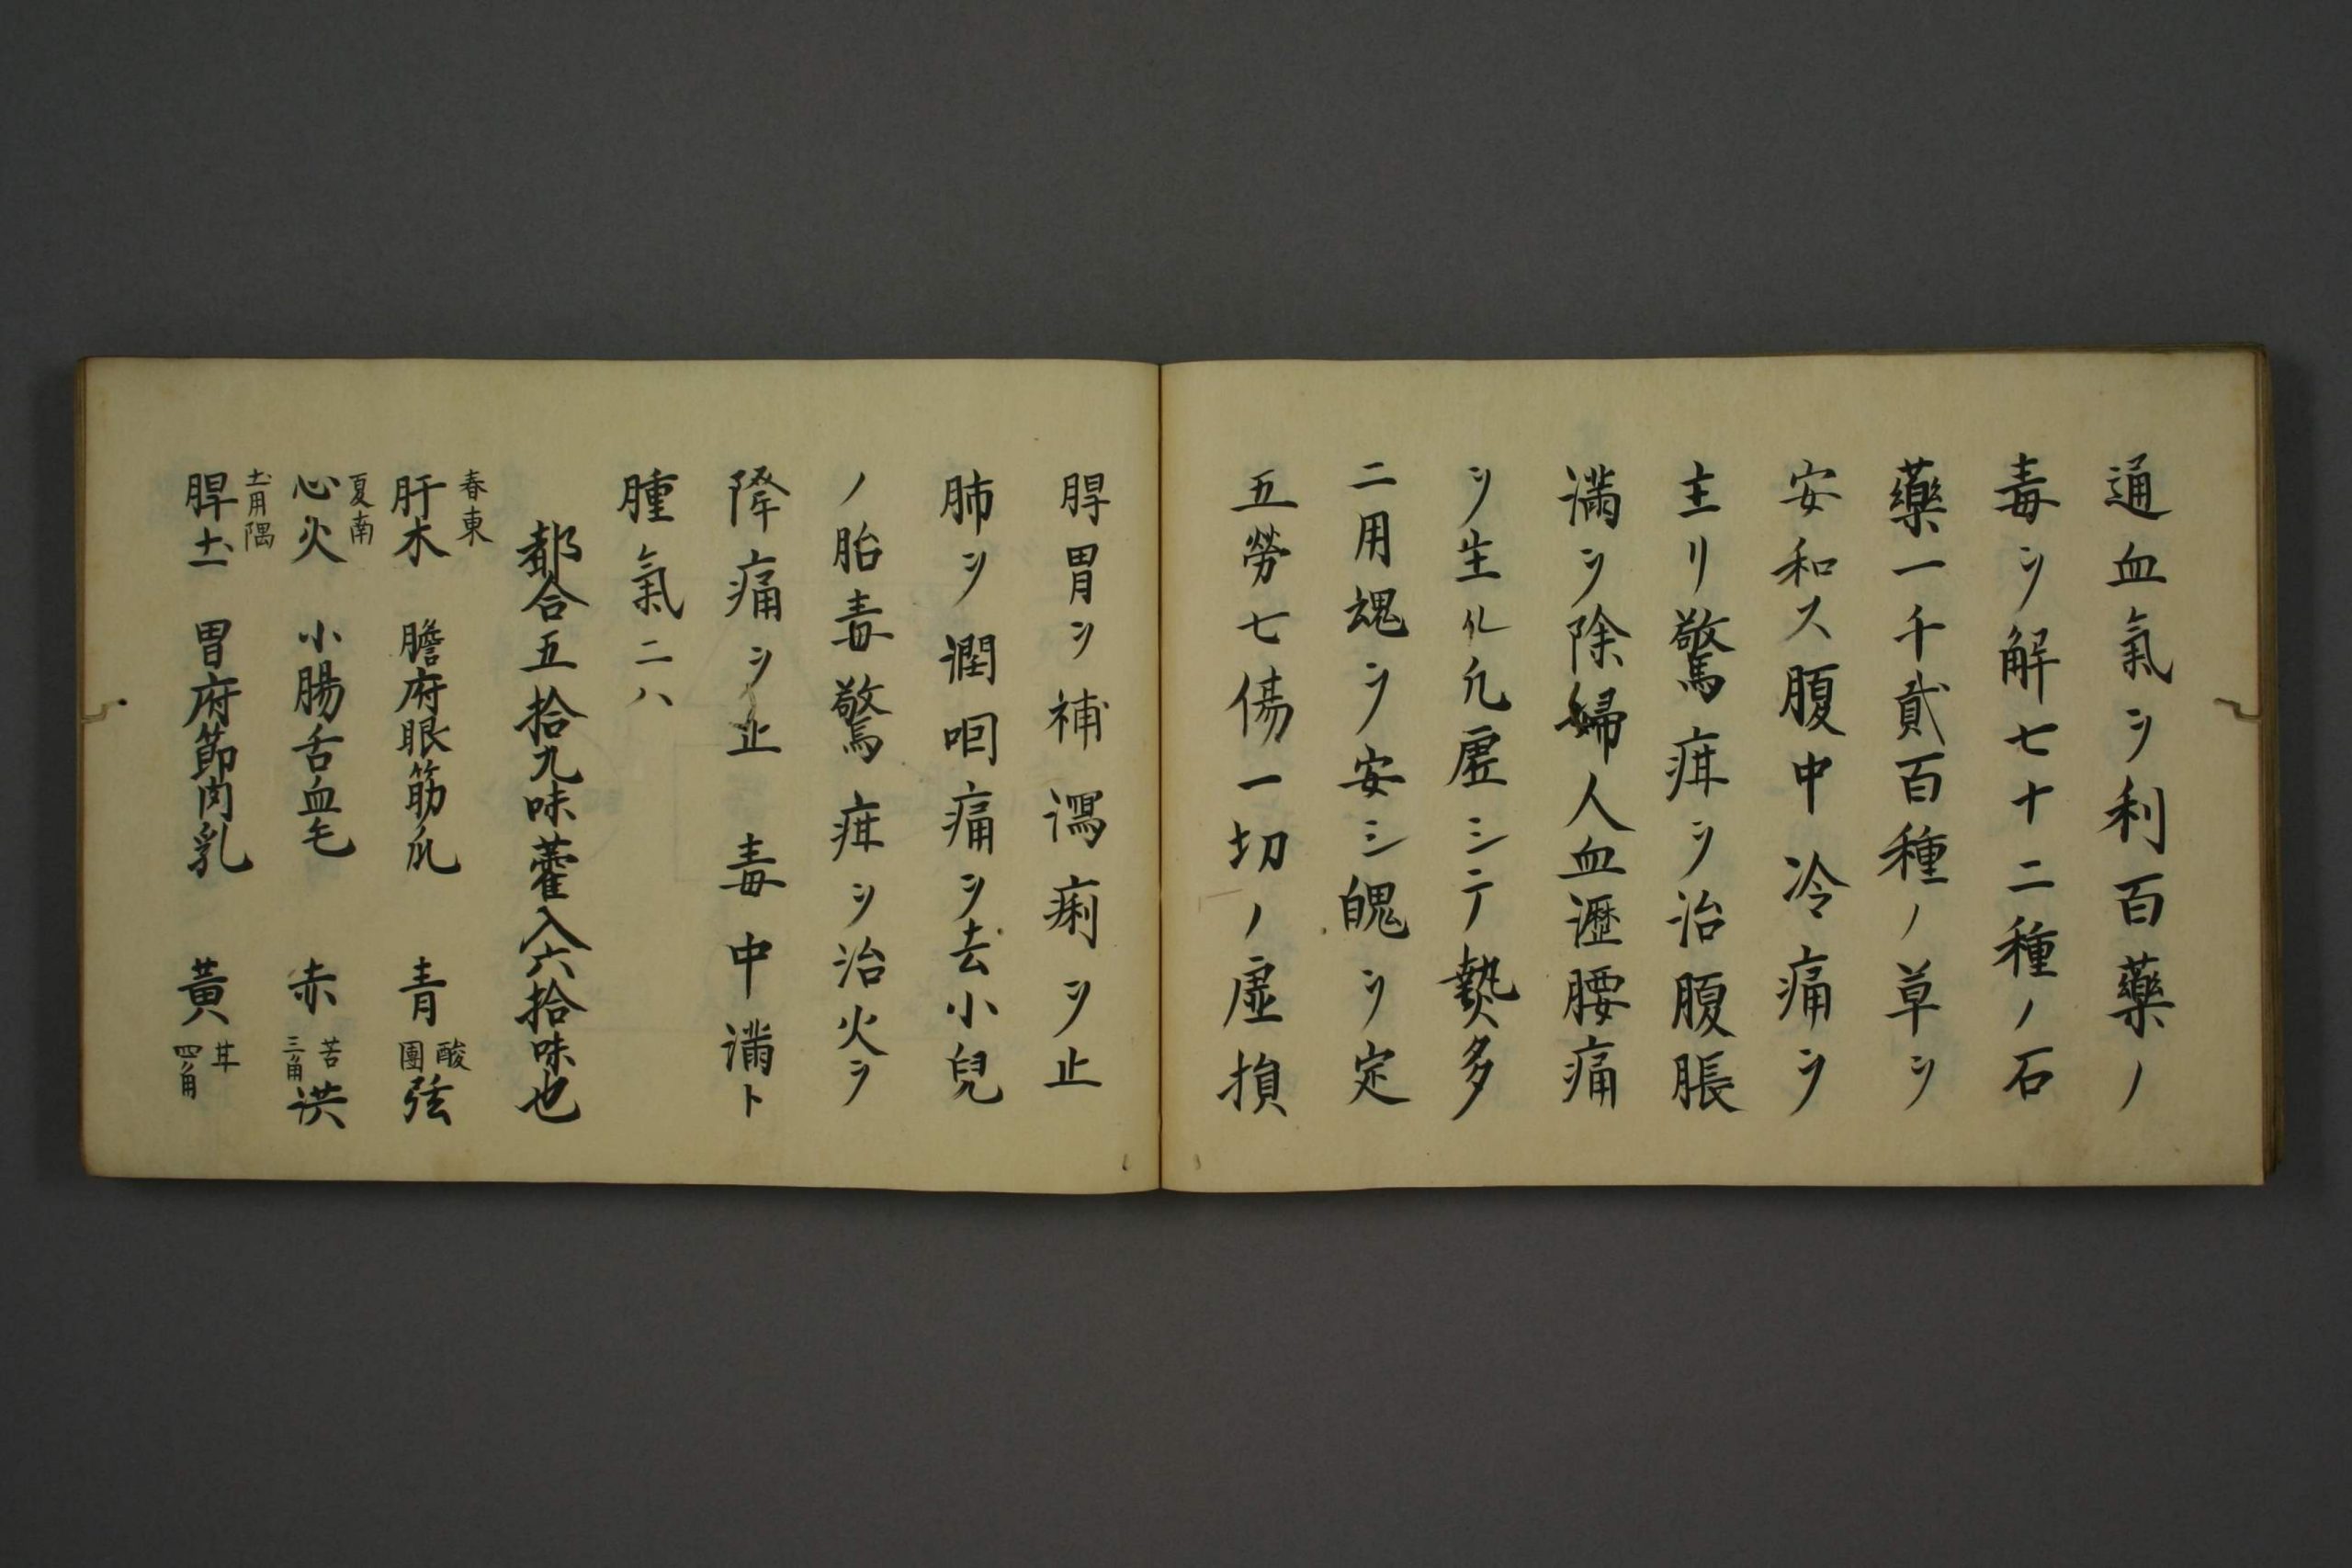 通血氣ヲ利百藥ノ
毒ヲ解七十二種ノ石
藥一千貳百種ノ草ヲ
安和ス腹中冷痛ヲ
主リ驚疳ヲ治腹脹
滿ヲ除婦人血瀝腰痛
ヲ生ル凡虚シテ熱多
ニ用魂ヲ安シ魄ヲ定
五勞七傷一切ノ虚損
脾胃ヲ補瀉痢ヲ止
肺ヲ潤咽痛ヲ去小兒
ノ胎毒驚疳ヲ治火ヲ
降痛ヲ止 毒中滿ト
腫氣ニハ
都合五拾九味藿入六拾味也
春東
肝木 膽府眼筋爪 青 酸團 弦
夏南
心火 小腸舌血毛 赤 苦三角 洪
土用隅
脾土 胃府節肉乳 黃 甘四角